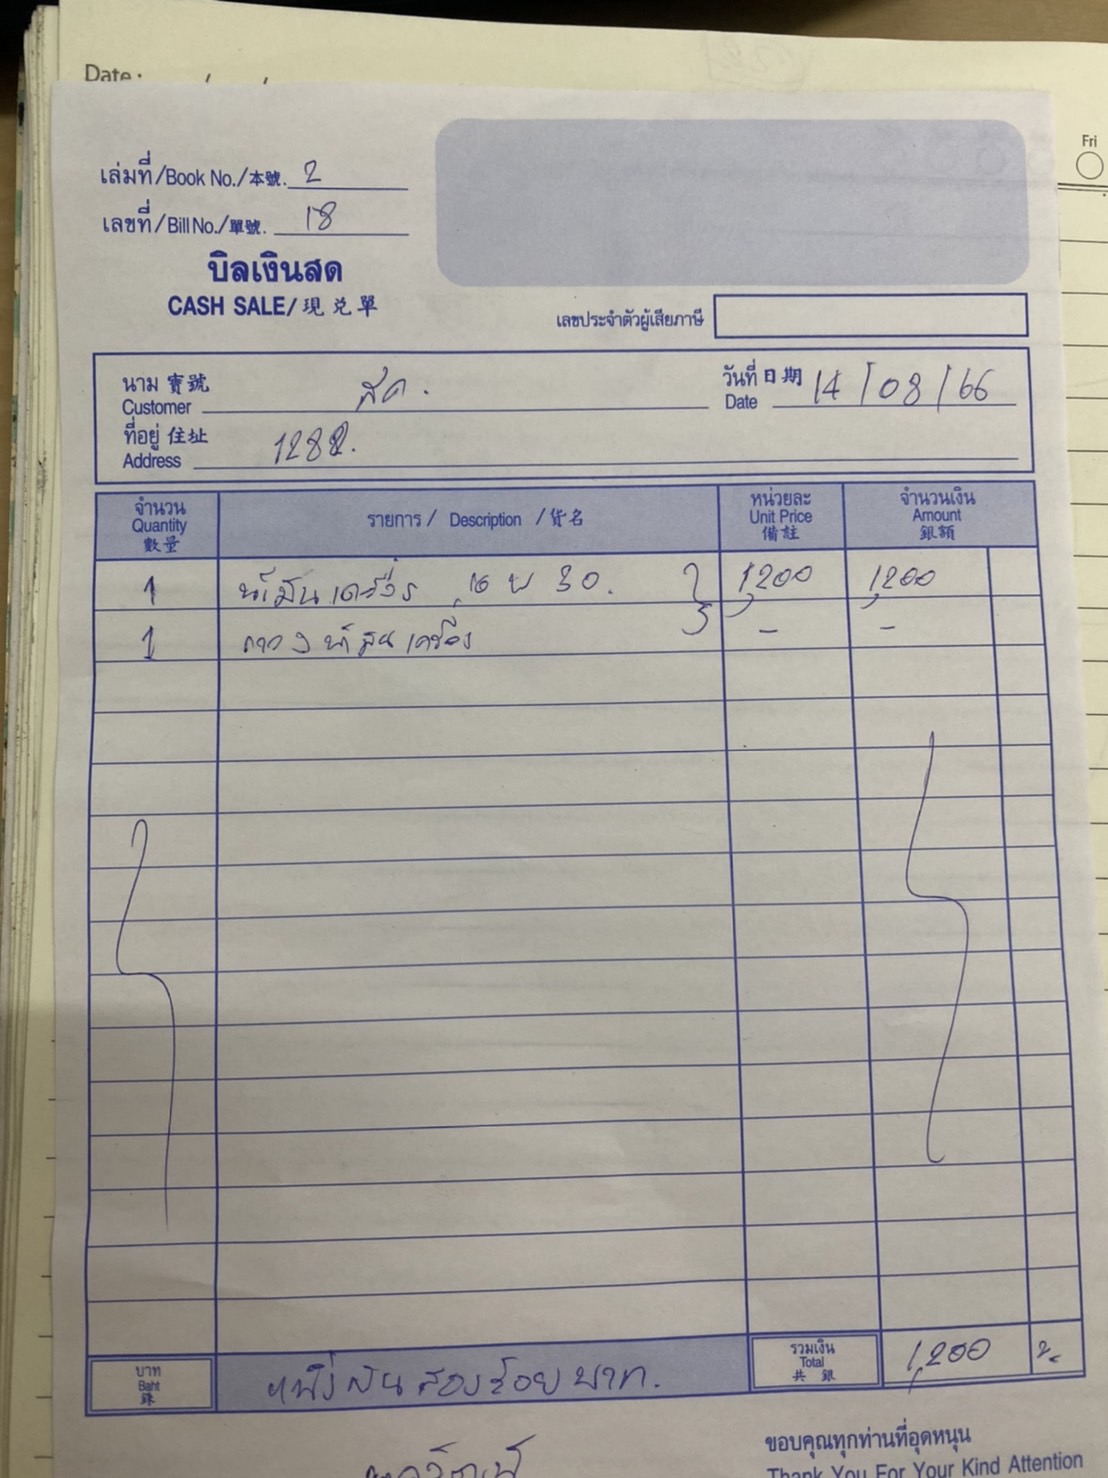 Date: / /
Fri
เล่มที่/Book No./本號. 2
เลขที่/Bill No./單號. 18
บิลเงินสด
CASH SALE/現兑單
เลขประจำตัวผู้เสียภาษี
นาม 寶號 วันที่ 日期 14/08/66
Customer สด. Date
ที่อยู่ 住址
Address
จำนวน รายการ / Description / 貨名 หน่วยละ จำนวนเงิน
Quantity Unit Price Amount
數量 備註 銀額
1 น้ำมันเครื่อง 30. 1,200 1,200
1 กรองน้ำมันเครื่อง - -
บาท หนึ่งพันสองร้อยบาท. รวมเงิน 1,200
Baht Total
銖 共銀
ขอบคุณทุกท่านที่อุดหนุน
Thank You For Your Kind Attention